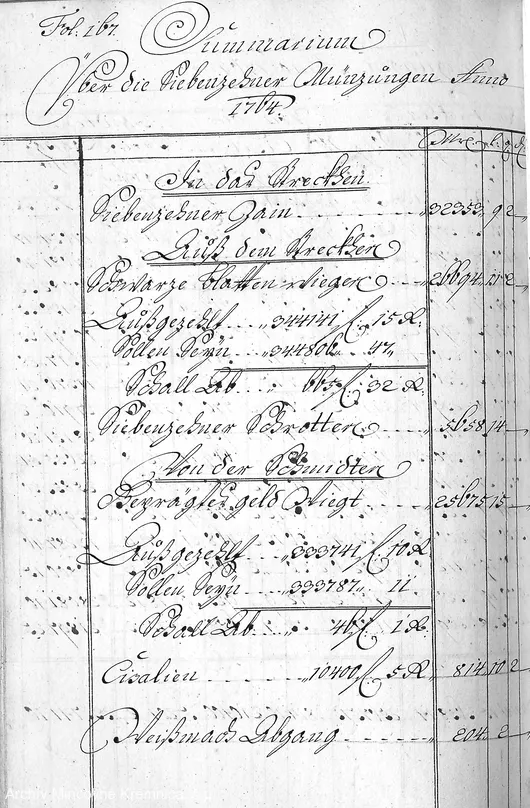 Fol: 167.
Summarium
Über die Siebenzehner Münzungen Anno
1764.
In das Streckhen
Siebenzehner Zain 32353 9 2
Auß dem Streckhen
Schwarze blatten wiegen 26694 11 2
Außgezehlt 344141 f. 15 R.
Sollen Seyn 344806 47
Schall Ab 665 f. 32 R.
Siebenzehner Schrotten 5658 14
Von der Schmidten
Geprägtes geld Wiegt 25675 15
Außgezehlt 333741 f. 10 R
Sollen Seyn 333787 11
Schall Ab 46 f. 1 R.
Cisalien 10400 f. 5 R 814 10 2
Weißmach Abgang 204 2